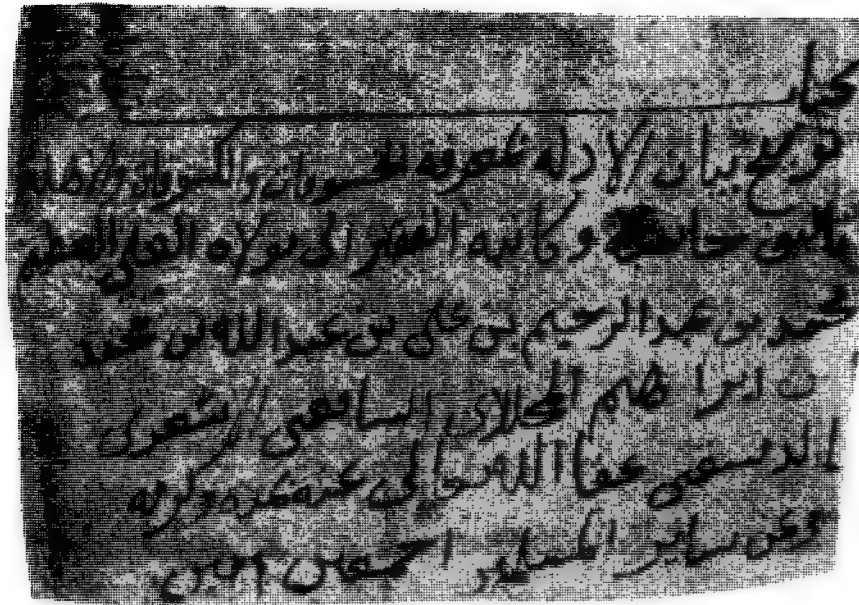 كتاب
توضيح بيان الادله لمعرفة الخسوفات والكسوفات والاهله
تاليف وكاتبه الفقير الى مولاه العلي العظيم
محمد بن عبد الرحيم بن علي بن عبد الله بن محمد
بن ابراهيم الشافعي الاشعري
الدمشقي عفا الله تعالى عنه
وعن ساير المسلمين اجمعين امين